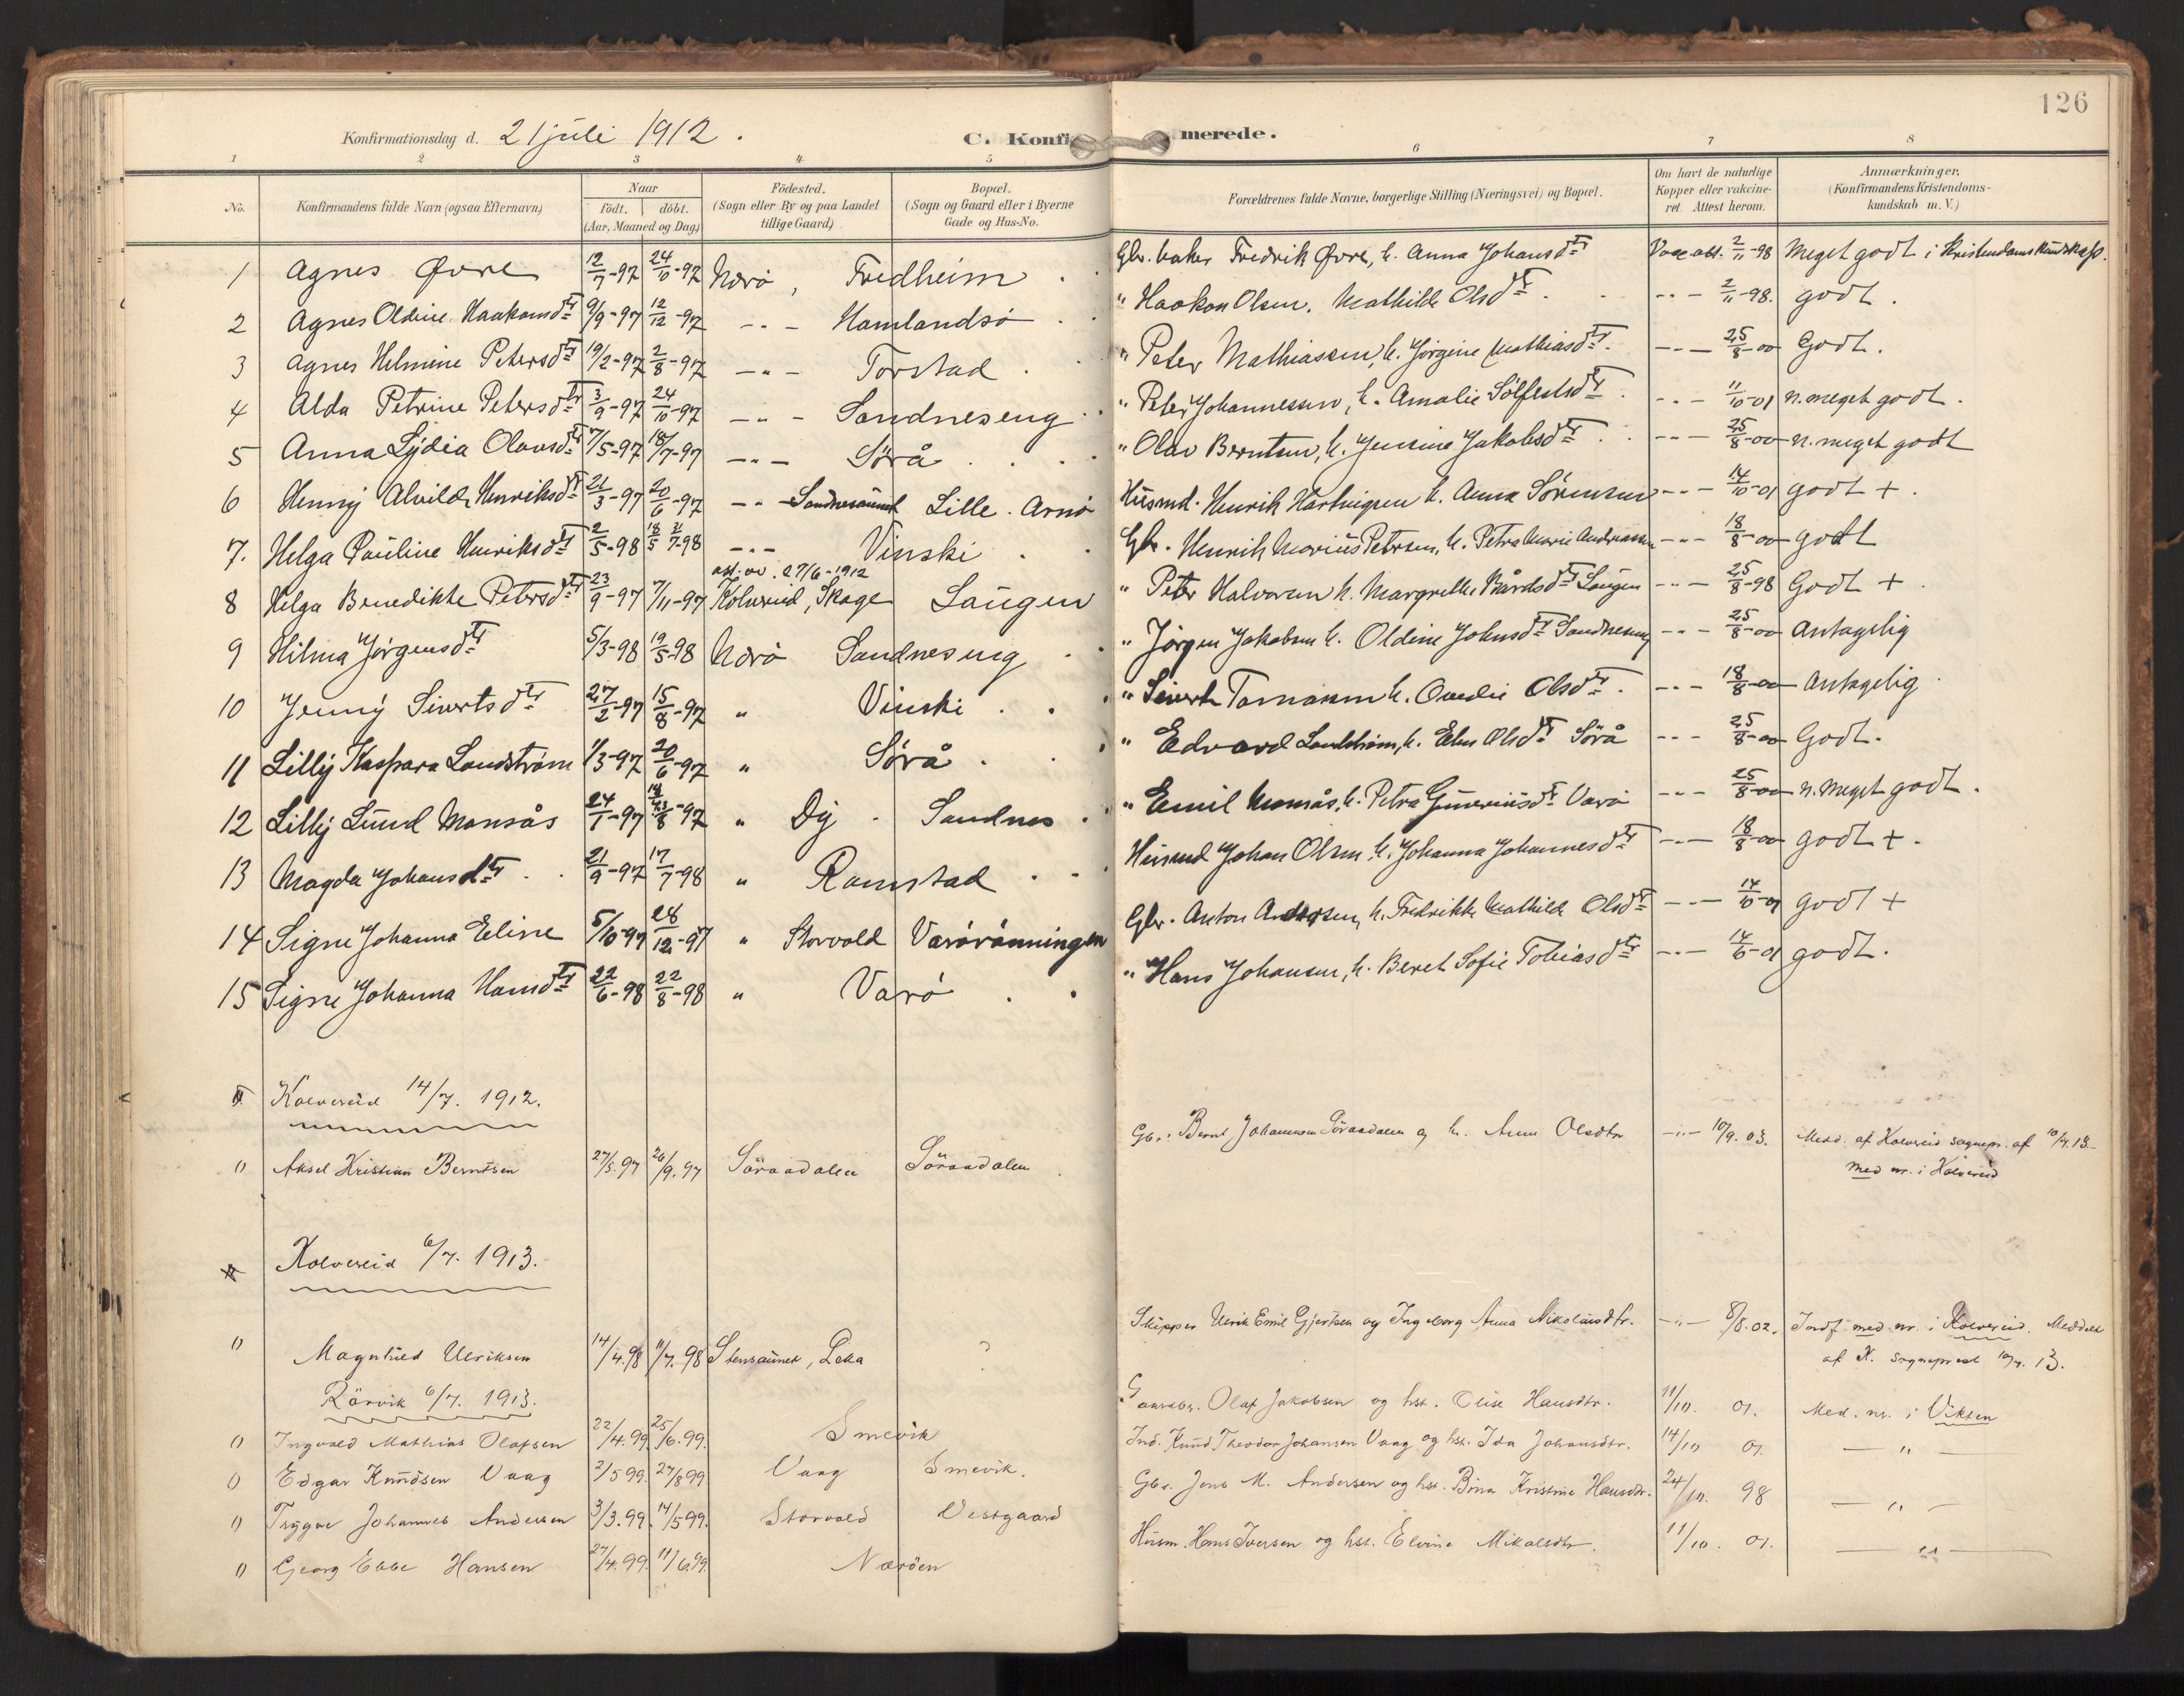 126
Konfirmationsdag d. 21 juli 1912. C. Konfirmerede.
1 2 3 4 5 6 7 8
No. Konfirmandens fulde Navn (ogsaa Efternavn) Naar født. døbt. (Aar, Maaned og Dag) Fødested. (Sogn eller By og paa Landet tillige Gaard) Bopæl. (Sogn og Gaard eller i Byerne Gade og Hus-No. Forældrenes fulde Navne, borgerlige Stilling (Næringsvei) og Bopæl. Om havt de naturlige Kopper eller vakcineret. Attest herom. Anmærkninger. (Konfirmandens Kristendomskundskab m. V.)
1 Agnes Øvre 12/7-97 24/10-97 Nærö, Fredheim Gbr. baker Fredrik Øvre, h. Anna Johansdtr Vacc. att. 2/11-98 Meget godt i Kristendomskundskap.
2 Agnes Oldine Haakonsdtr 9/9-97 12/12-97 -"- Hamlandsö " Haakon Olsen. Mathilde Olsdtr. -"- 2/11-98. godt.
3 Agnes Helmine Petersdtr 19/2-97 2/8-97 -"- Torstad " Peter Mathiassen, h. Jörgine Mathiasdtr. -"- 25/8-00 Godt.
4 Alda Petrine Petersdtr 3/9-97 24/10-97 -"- Sandneseng " Peter Johannessen, h. Amalie Sölfestsdtr -"- 11/10-01 n. meget godt.
5 Anna Lydia Olavsdtr 7/5-97 18/7-97 -"- Sörå " Olav Berntsen, h. Jensine Jakobsdtr -"- 25/8-00 n. meget godt
6 Henny Alvilde Henriksdtr 21/3-97 20/6-97 -"- Lille. Arnö Husmd. Henrik Hartvigsen h. Anna Sörensen -"- 14/10-01 godt +.
7. Helga Pauline Henriksdtr 2/5-98 18/5 7-98 -"- Vinski Gbr. Henrik Marius Petersen, h. Petra Marie Andreassen -"- 18/8-00 godt
att. av. 27/6-1912
8 Helga Benedikte Petersdtr 23/9-97 7/11-97 Kolvereid, Skage Laugen " Peter Halvorsen h. Margrethe Bårdsdtr Laugen -"- 25/8-98 Godt +
9 Hilma Jörgensdtr 5/3-98 19/5-98 Nærö Sandneseng " Jörgen Jakobsen h. Oldine Johnsdtr Sandneseng -"- 25/8-00 Antagelig
10 Jenny Sivertsdtr 27/2-97 15/8-97 " Vinski " Sivert h. Ovedie Olsdtr. -"- 18/8-00 Antagelig
11 Lilly Kaspara Landström 1/3-97 20/6-97 " Sörå " Edvard Landström, h. Olsdtr Sörå -"- 25/8-00 Godt.
12 Lilly Lund Monsås 24/1-97 8-97 " Dy - Sandnes " Emil Monsås, h. Petra Guneriusdtr Varö -"- 25/8-00 n. meget godt.
13 Magda Johansdtr 21/9-97 17/7-98 " Ramstad Husmd Johan Olsen h. Johanna Johannesdtr -"- 18/8-00 godt +.
14 Signe Johanna Eline 5/10-97 28/12-97 " Storvold Varörönningen Gbr. Anton Andersen, h. Fredrikke Mathilde Olsdtr -"- 14/10-01 godt +
15 Signe Johanna Hansdtr 22/6-98 22/8-98 " Varö " Hans Johansen, h. Beret Sofie Tobiasdtr -"- godt.
Kolvereid 14/7. 1912.
0 Aksel Kristian Berntsen 27/5. 97 26/9. 97 Söraadalen Söraadalen Gbr. Bernt Johannesen Söraadalen og h. Anne Olsdtr -"- 10/9. 03. Medd. af Kolvereid sognepr. af 10/7.13.
Med nr. i Kolvereid
Kolvereid 6/7. 1913.
0 Magnhild Ulriksen 14/4.98 11/7.98 Stensaunet, Leka ? Skipper Ulrik Emil Gjertsen og Ingeborg Anna Nikolaisdtr. -"- 8/8.02. Indf. med nr. i Kolvereid. Meddelt
af K. Sogneprest 10/7. 13.
Rörvik 6/7. 1913.
0 Ingvald Mathias Olafsen 22/4.99. 25/6.99. Smevik Gaardbr. Olaf Jakobsen og hst. Elise Hansdtr. 11/10. 01. Med. nr. i Vikten
0 Edgar Knudsen Vaag 2/5 99. 27/8 99 Vaag Smevik. Ind. Knud Theodor Johansen Vaag og hst. Ida Johansdtr. 14/10 01. — " —
0 Trygve Johannes Andersen 3/3.99. 14/5 99. Storvold Vestgaard Gbr. Jens M. Andersen og hst. Bina Kristine Hansdtr. 24/10. 98 — " —
0 Georg Ebbe Hansen 27/4.99. 11/6.99. Næröen Husm. Hans Iversen og hst. Elvine Mikalsdtr. 11/10. 01. — " —